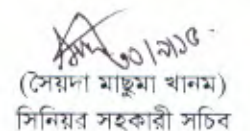 ৩০/৯/১৫
(সৈয়দা মাছুমা খানম)
সিনিয়র সহকারী সচিব